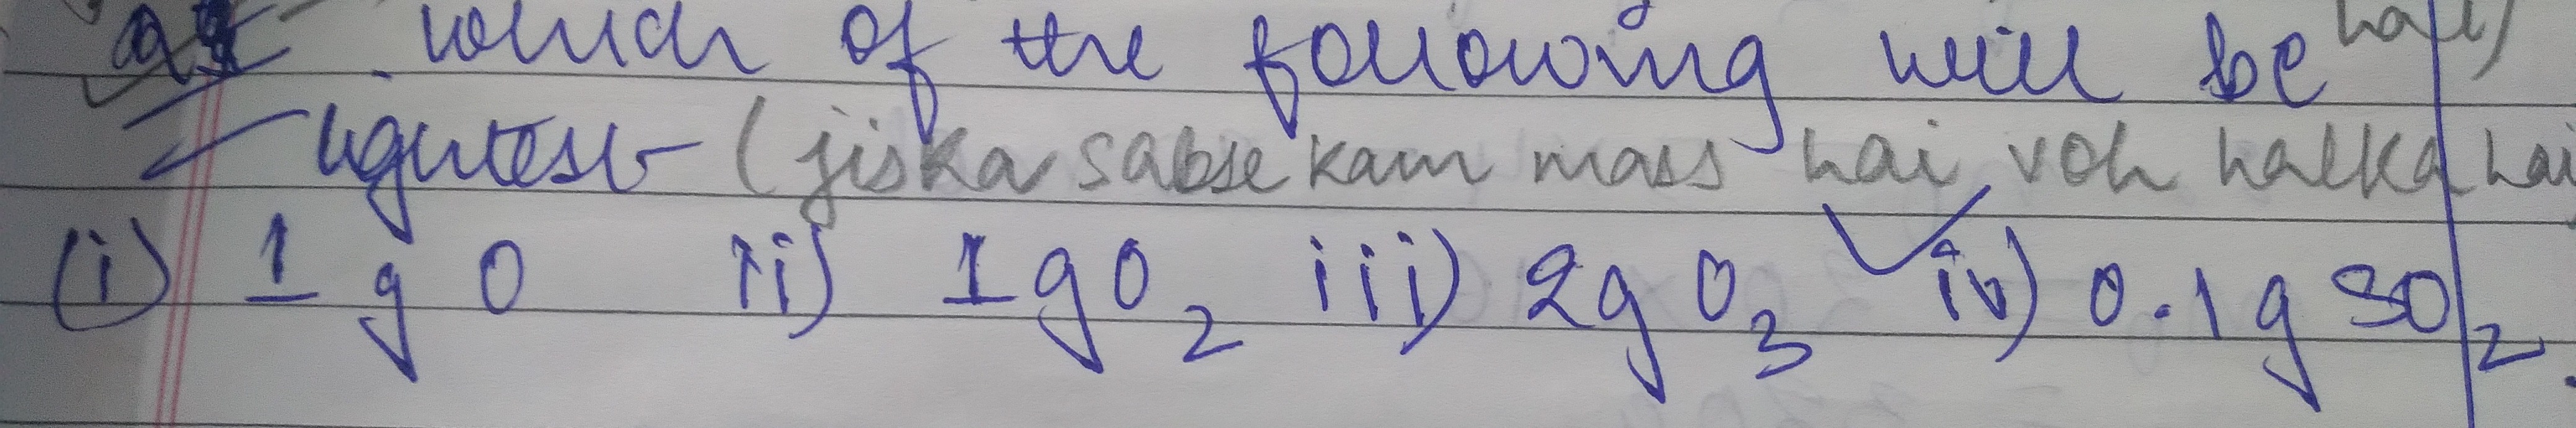 which of the following will be hai)
lightest (jiska sabse kam mass hai voh halka hai
(i) 1 g O ii) 1 g O2 iii) 2g O3 iv) 0.1 g SO2.